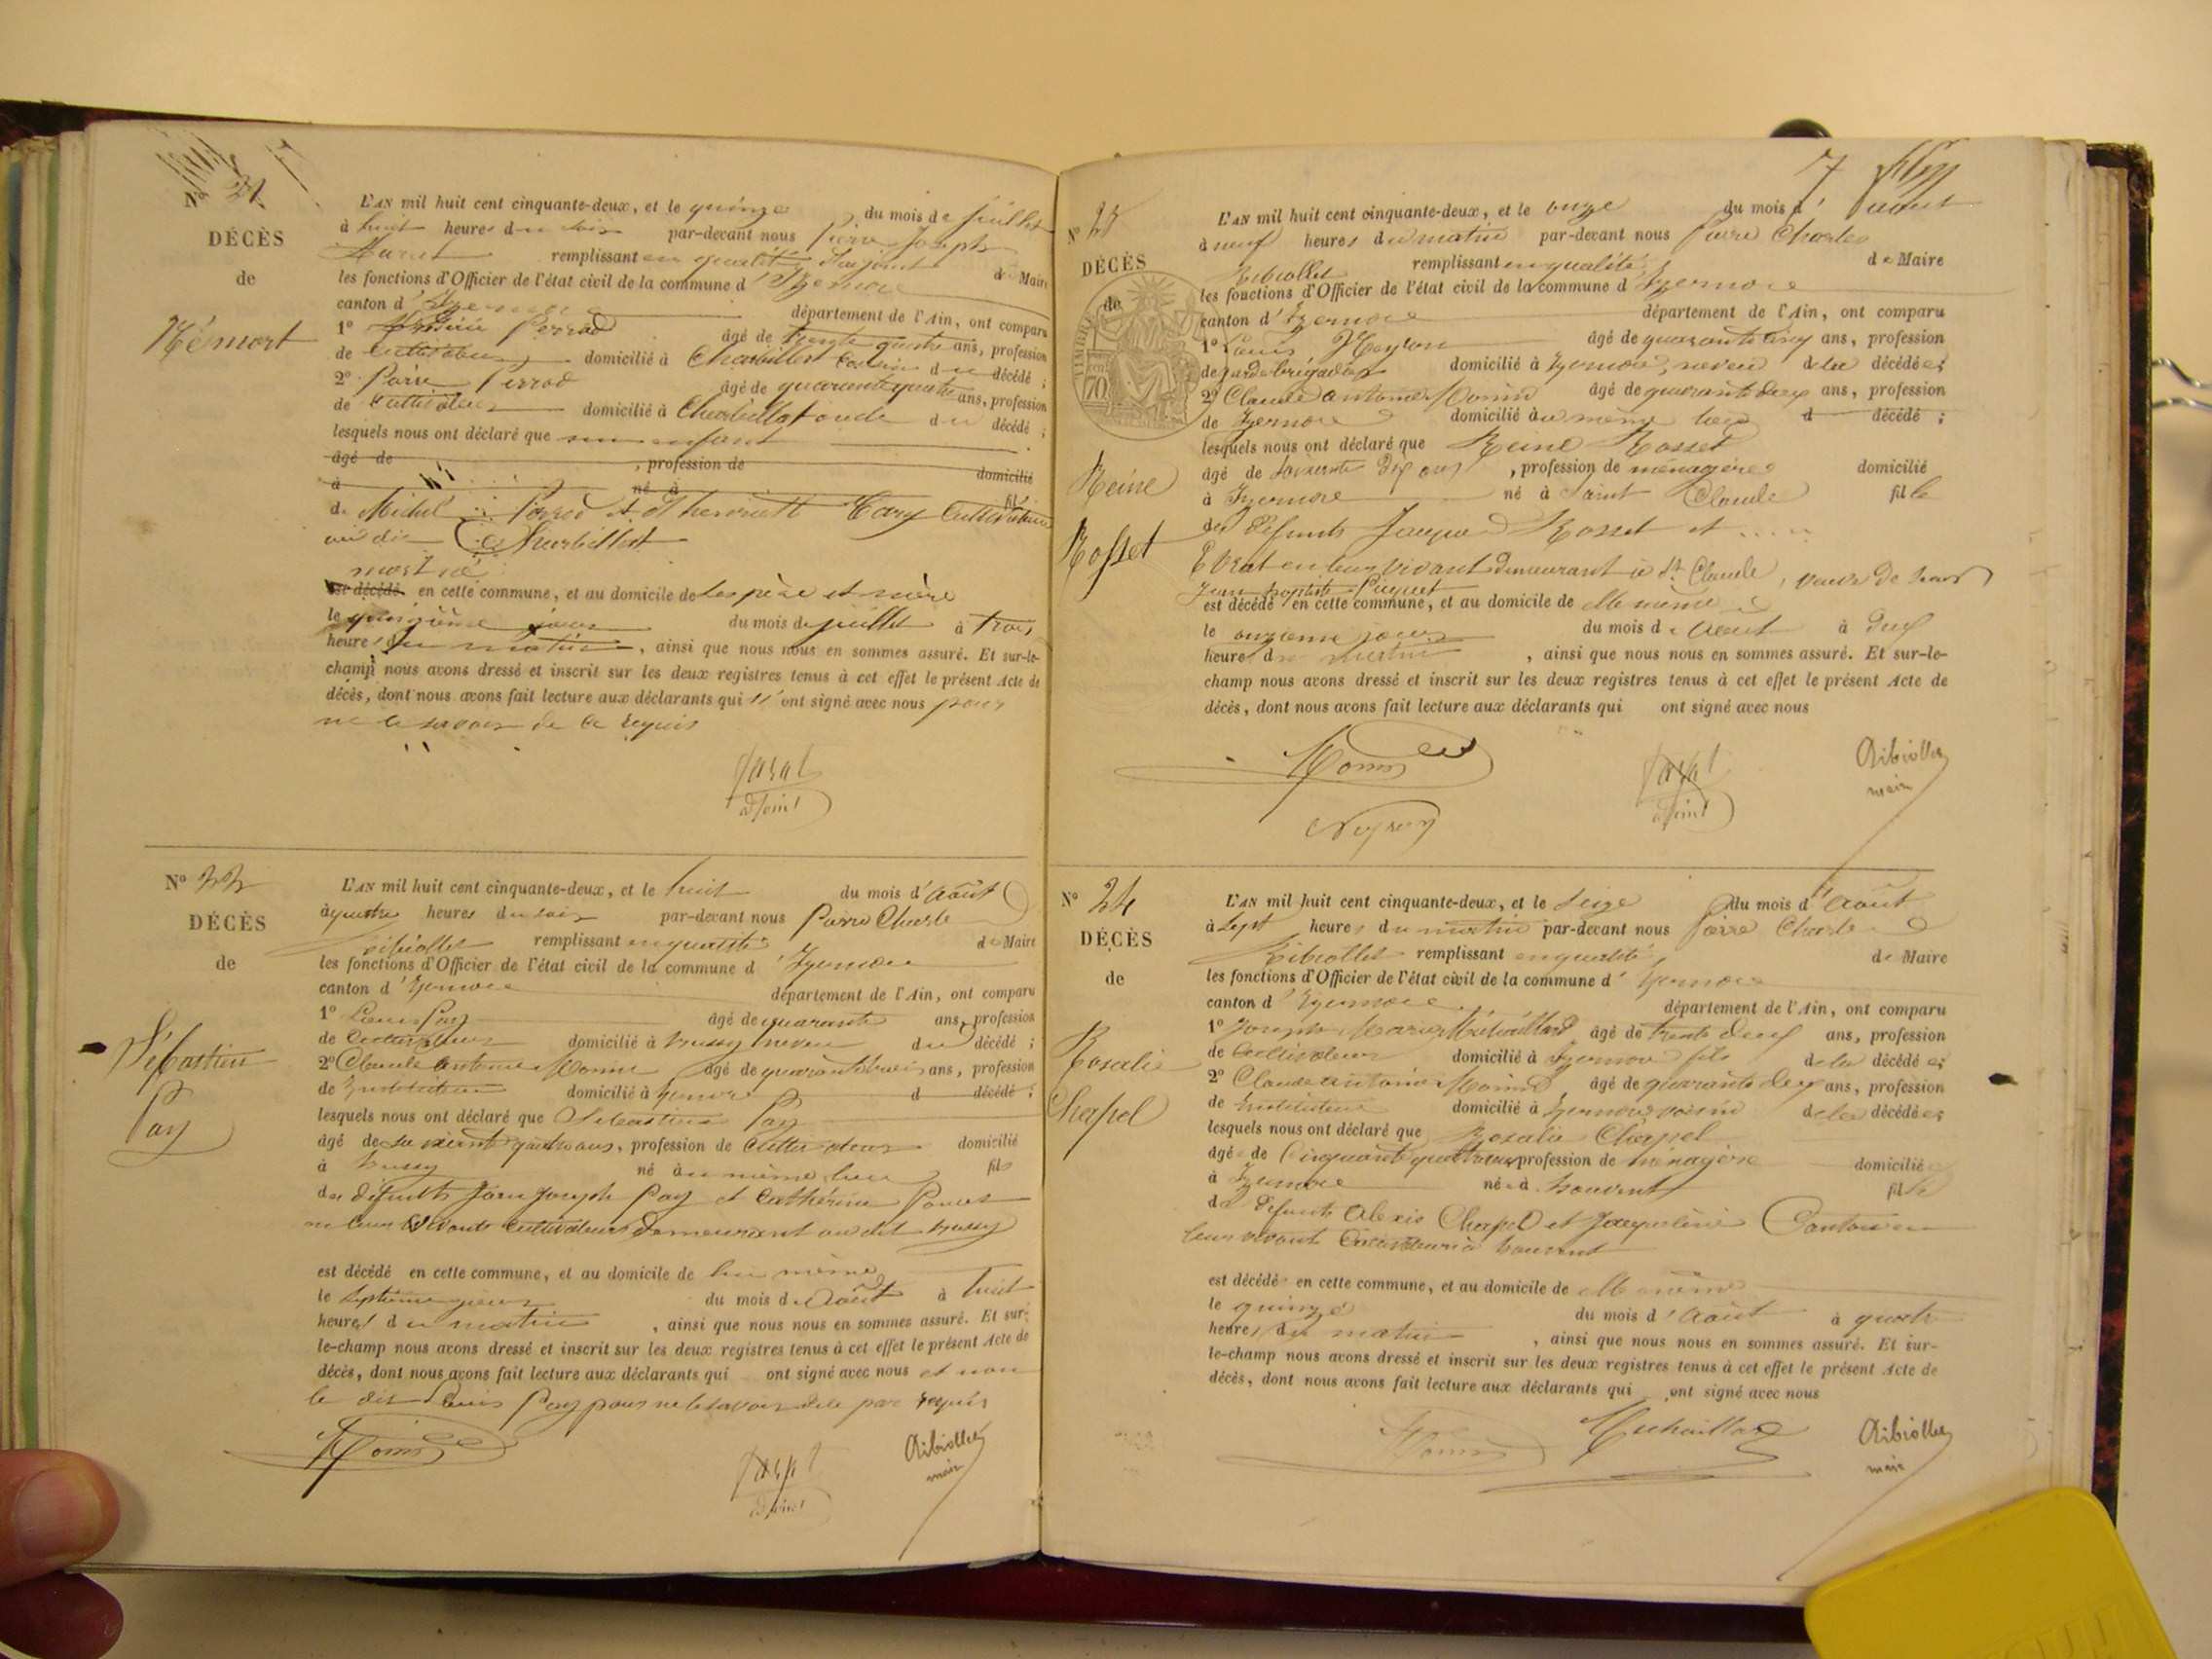 Nº 21
DÉCÈS
de
L'AN mil huit cent cinquante-deux, et le quinze du mois de juillet
à huit heures du soir par-devant nous Pierre Joseph
remplissant en qualité d'adjoint de Maire
les fonctions d'Officier de l'état civil de la commune d'Izernore
canton d'Izernore département de l'Ain, ont comparu
1º Perrod âgé de trente quatre ans, profession
de cultivateur domicilié à Charbillat cousin du décédé ;
2º Pierre Perrod âgé de quarante quatre ans, profession
de cultivateur domicilié à Charbillat oncle du décédé ;
lesquels nous ont déclaré que un enfant
âgé de , profession de domicilié
à né à fil
de Michel Perrod et Cultivateurs
au dit Charbillat
mort né
est décédé en cette commune, et au domicile de ses père et mère
le quinzième jour du mois de juillet à trois
heures du matin, ainsi que nous nous en sommes assuré. Et sur-le-
champ nous avons dressé et inscrit sur les deux registres tenus à cet effet le présent Acte de
décès, dont nous avons fait lecture aux déclarants qui n'ont signé avec nous pour
ne le savoir de ce requis
adjoint
Nº 22
DÉCÈS
de
Sébastien
Pay
L'AN mil huit cent cinquante-deux, et le huit du mois d'Août
à quatre heures du soir par-devant nous Pierre Charle
Ribiollet remplissant en qualité de Maire
les fonctions d'Officier de l'état civil de la commune d'Izernore
canton d'Izernore département de l'Ain, ont comparu
1º Louis Pay âgé de quarante ans, profession
de Cultivateur domicilié à Bussy neveu du décédé ;
2º Claude Antoine Monin âgé de quarante trois ans, profession
de Instituteur domicilié à Izernore d décédé ;
lesquels nous ont déclaré que Sébastien Pay
âgé de soixante quatre ans, profession de Cultivateur domicilié
à Bussy né au même lieu fils
des défunts Jean Joseph Pay et Cathérine
en leurs vivants cultivateurs demeurant au dit Bussy
est décédé en cette commune, et au domicile de lui même
le septième jour du mois d'Août à huit
heures du matin, ainsi que nous nous en sommes assuré. Et sur-
le-champ nous avons dressé et inscrit sur les deux registres tenus à cet effet le présent Acte de
décès, dont nous avons fait lecture aux déclarants qui ont signé avec nous et non
le dit Louis Pay pour ne le savoir de ce par requis
Monin
adjoint
Ribiollet
maire
7
Nº 23
DÉCÈS
de
TIMBRE
70
Reine
Rosset
L'AN mil huit cent cinquante-deux, et le onze du mois d'août
à neuf heures du matin par-devant nous Pierre Charles
Ribiollet remplissant en qualité de Maire
les fonctions d'Officier de l'état civil de la commune d'Izernore
canton d'Izernore département de l'Ain, ont comparu
1º Louis âgé de quarante cinq ans, profession
de garde brigadier domicilié à Izernore, neveu de la décédée ;
2º Claude antoine Monin âgé de quarante deux ans, profession
de Izernore domicilié au même lieu d décédé ;
lesquels nous ont déclaré que Reine Rosset
âgé de soixante dix ans, profession de ménagère domicilié
à Izernore né à Saint Claude fille
des défunts Jacque Rosset et ....
en leur vivant demeurant à St Claude, veuve de
Jean baptiste
est décédé en cette commune, et au domicile de elle même
le onzième jour du mois d'Aout à deux
heures du matin, ainsi que nous nous en sommes assuré. Et sur-le-
champ nous avons dressé et inscrit sur les deux registres tenus à cet effet le présent Acte de
décès, dont nous avons fait lecture aux déclarants qui ont signé avec nous
Monin
adjoint
Ribiollet
maire
Nº 24
DÉCÈS
de
Rosalie
Chapel
L'AN mil huit cent cinquante-deux, et le seize du mois d'Août
à sept heures du matin par-devant nous Pierre Charle
Ribiollet remplissant en qualité de Maire
les fonctions d'Officier de l'état civil de la commune d'Izernore
canton d'Izernore département de l'Ain, ont comparu
1º Joseph Marie Michaillard âgé de trente deux ans, profession
de Cultivateur domicilié à Izernore fils de la décédée ;
2º Claude antoine Monin âgé de quarante deux ans, profession
de Instituteur domicilié à Izernore voisin de la décédée ;
lesquels nous ont déclaré que Rosalie Chapel
âgé de Cinquante quatre ans, profession de ménagère domicilié
à Izernore né à fille
des défunts Alexis Chapel et Jacqueline
leur vivant Cultivateurs à
est décédé en cette commune, et au domicile de elle même
le quinze du mois d'Août à quatre
heures du matin, ainsi que nous nous en sommes assuré. Et sur-
le-champ nous avons dressé et inscrit sur les deux registres tenus à cet effet le présent Acte de
décès, dont nous avons fait lecture aux déclarants qui ont signé avec nous
Monin
Michaillard
Ribiollet
maire